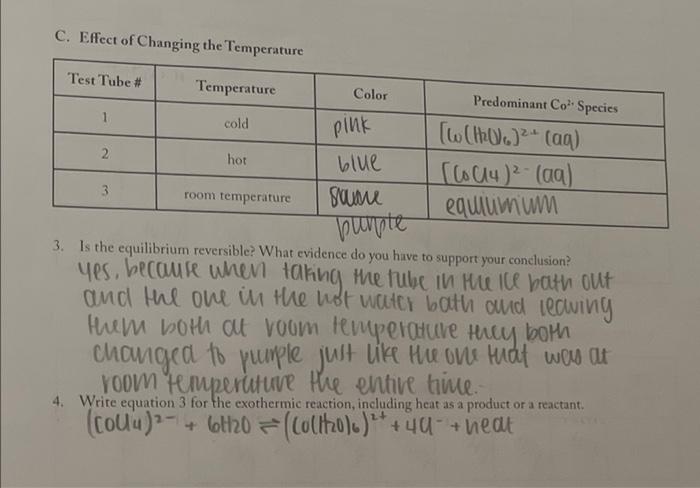 C. Effect of Changing the Temperature
Test Tube # Temperature Color Predominant Co²⁺ Species
1 cold pink [Co(H2O)6]²⁺ (aq)
2 hot blue [CoCl4)²⁻ (aq)
3 room temperature same purple equliumium
3. Is the equilibrium reversible? What evidence do you have to support your conclusion?
yes, because when taking the tube in the ice bath out
and the one in the hot water bath and leaving
them both at room temperature they both
changed to purple just like the one that was at
room temperature the entire time.
4. Write equation 3 for the exothermic reaction, including heat as a product or a reactant.
(CoCl4)²⁻ + 6H2O ⇌ (Co(H2O)6)²⁺ + 4Cl⁻ + heat